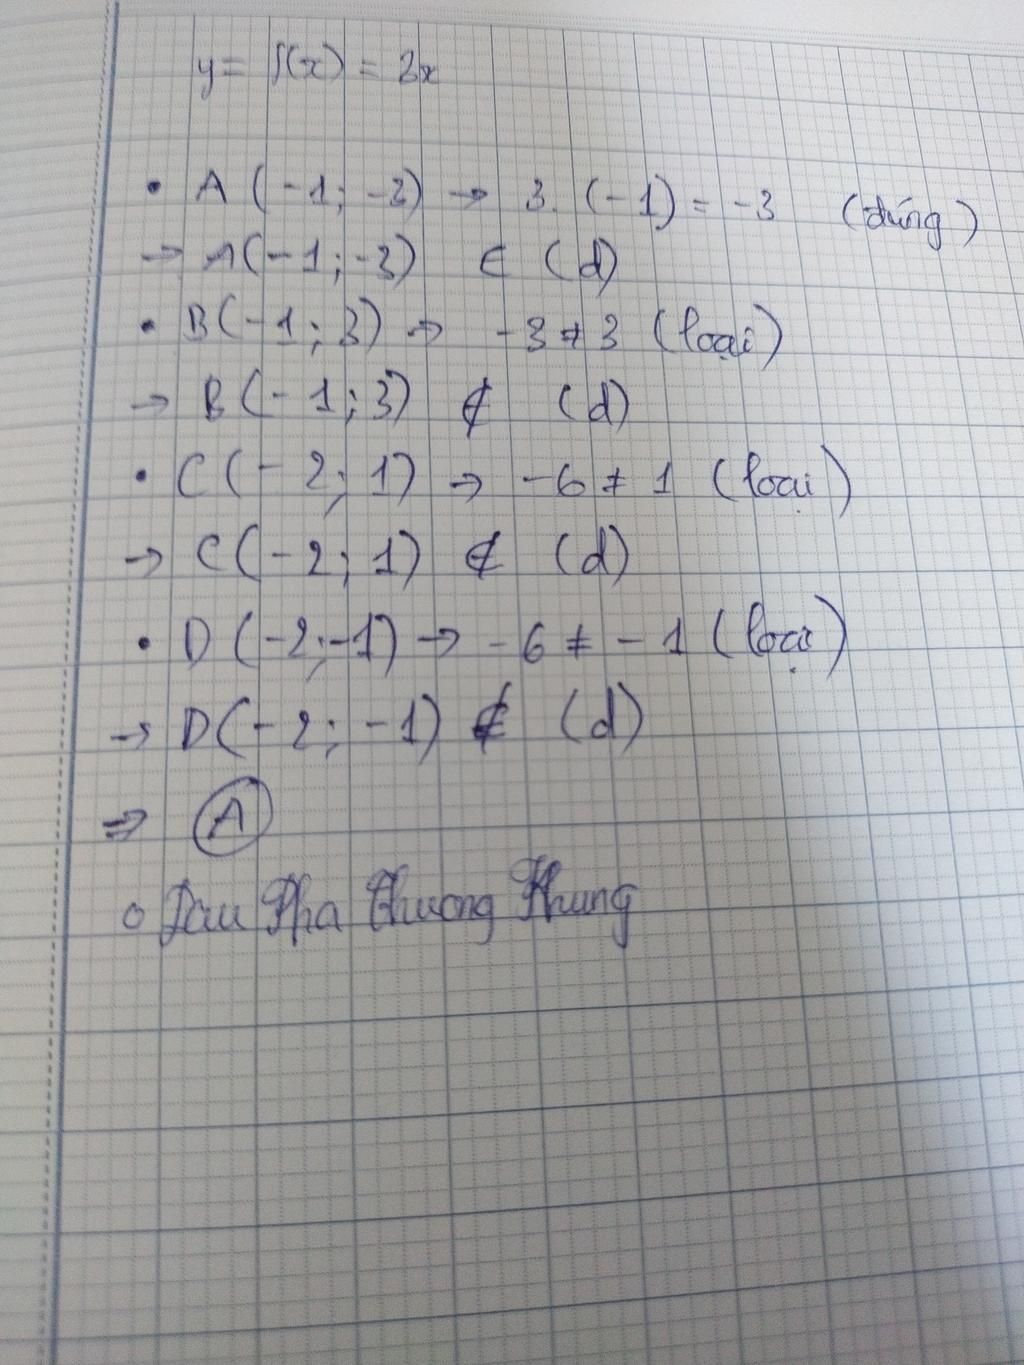 y = f(x) = 3x
• A (-1; -3) → 3. (-1) = -3 (đúng)
→ A(-1; -3) ∈ (d)
• B(-1; 3) → -3 ≠ 3 (loại)
→ B(-1; 3) ∉ (d)
• C(-2; 1) → -6 ≠ 1 (loại)
→ C(-2; 1) ∉ (d)
• D(-2; -1) → -6 ≠ -1 (loại)
→ D(-2; -1) ∉ (d)
⇒ A
o Dau Pha Thuong Khung